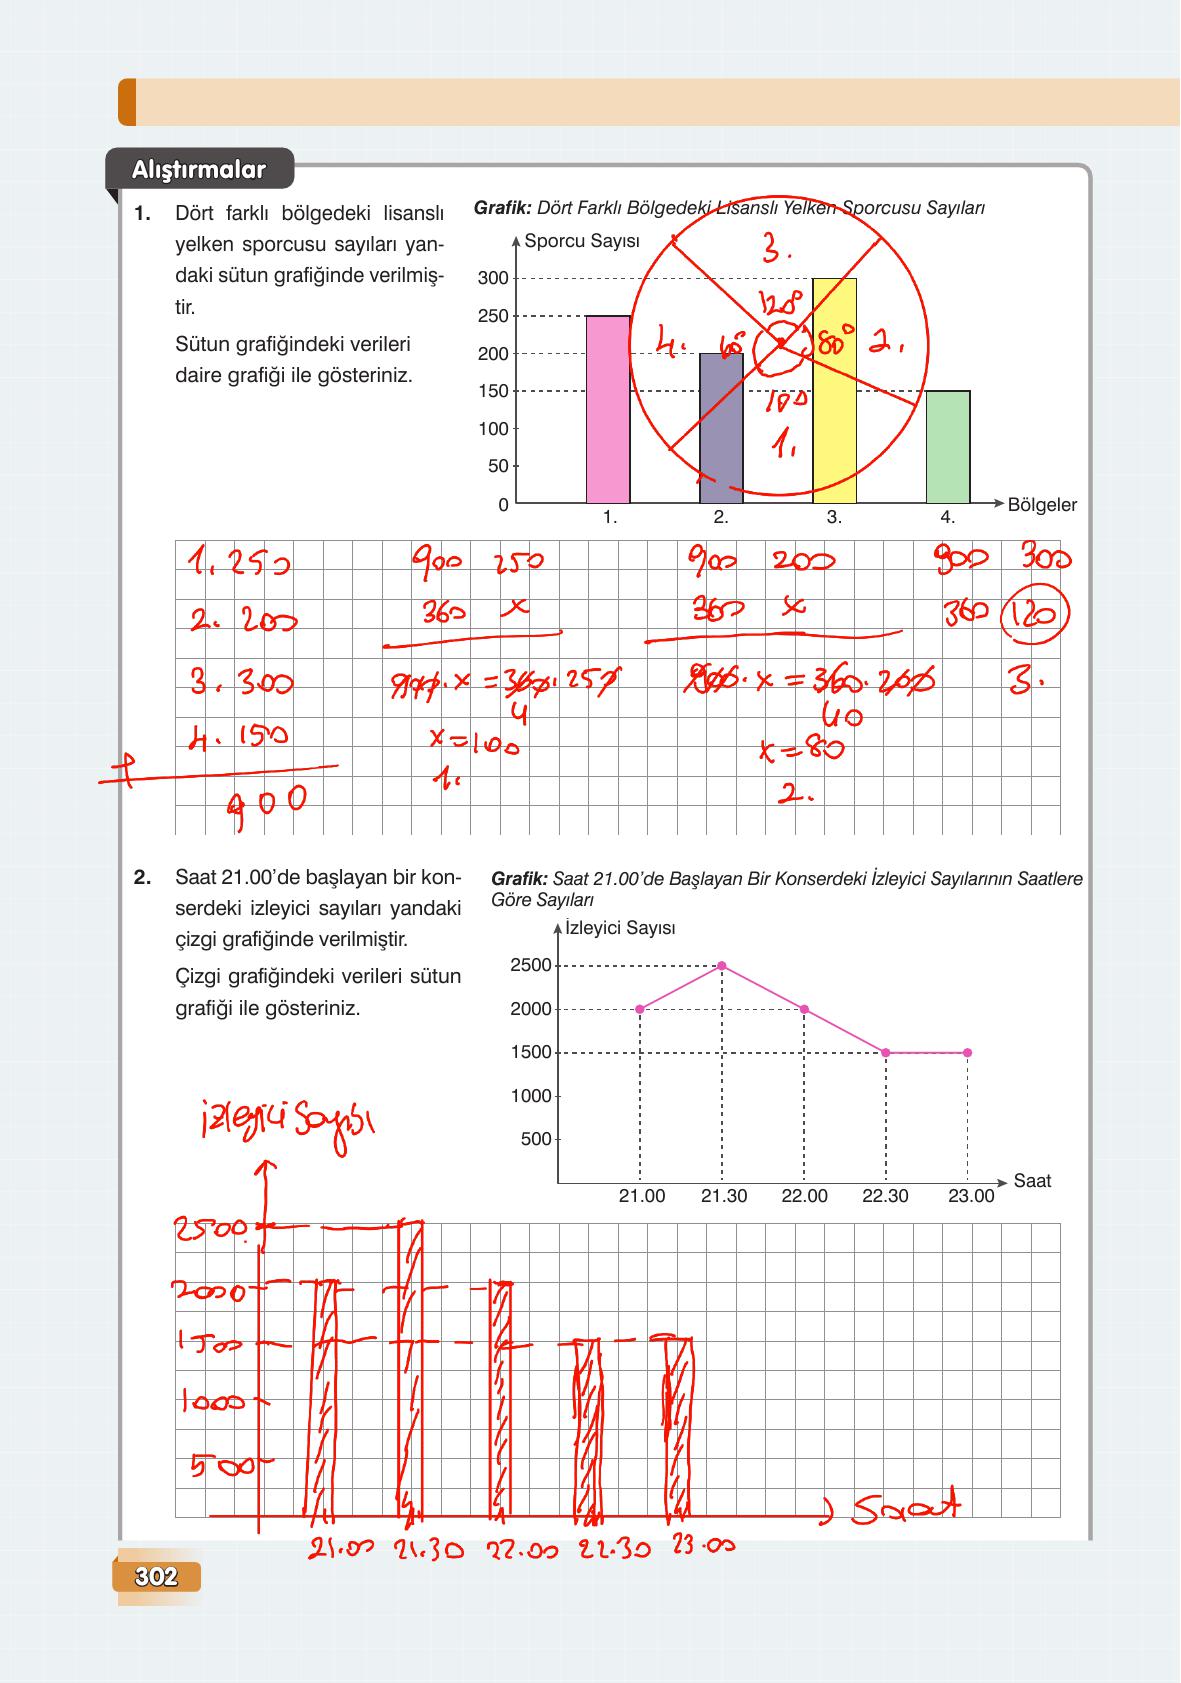 Alıştırmalar
1. Dört farklı bölgedeki lisanslı
yelken sporcusu sayıları yan-
daki sütun grafiğinde verilmiş-
tir.
Sütun grafiğindeki verileri
daire grafiği ile gösteriniz.
Grafik: Dört Farklı Bölgedeki Lisanslı Yelken Sporcusu Sayıları
Sporcu Sayısı
300
250
200
150
100
50
0
1. 2. 3. 4.
Bölgeler
3.
120°
4. 60° 80° 2.
100
1.
1. 250
2. 200
3. 300
4. 150
+
900
900 250
360 x
900.x = 360.250
4
x=100
1.
900 200
360 x
900.x = 360.200
40
x=80
2.
900 300
360 120
3.
2. Saat 21.00’de başlayan bir kon-
serdeki izleyici sayıları yandaki
çizgi grafiğinde verilmiştir.
Çizgi grafiğindeki verileri sütun
grafiği ile gösteriniz.
Grafik: Saat 21.00’de Başlayan Bir Konserdeki İzleyici Sayılarının Saatlere
Göre Sayıları
İzleyici Sayısı
2500
2000
1500
1000
500
21.00 21.30 22.00 22.30 23.00
Saat
izleyici Sayısı
2500
2000
1500
1000
500
Saat
21.00 21.30 22.00 22.30 23.00
302